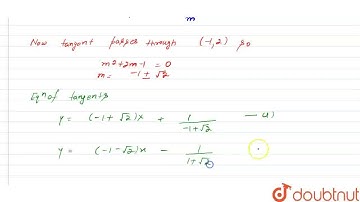 m
Now tangent passes through (-1, 2) so
m² + 2m - 1 = 0
m = -1 ± √2
Eqⁿ of tangents
y = (-1 + √2)x + 1/(-1+√2) — (1)
y = (-1 - √2)x - 1/(1+√2)
doubtnut